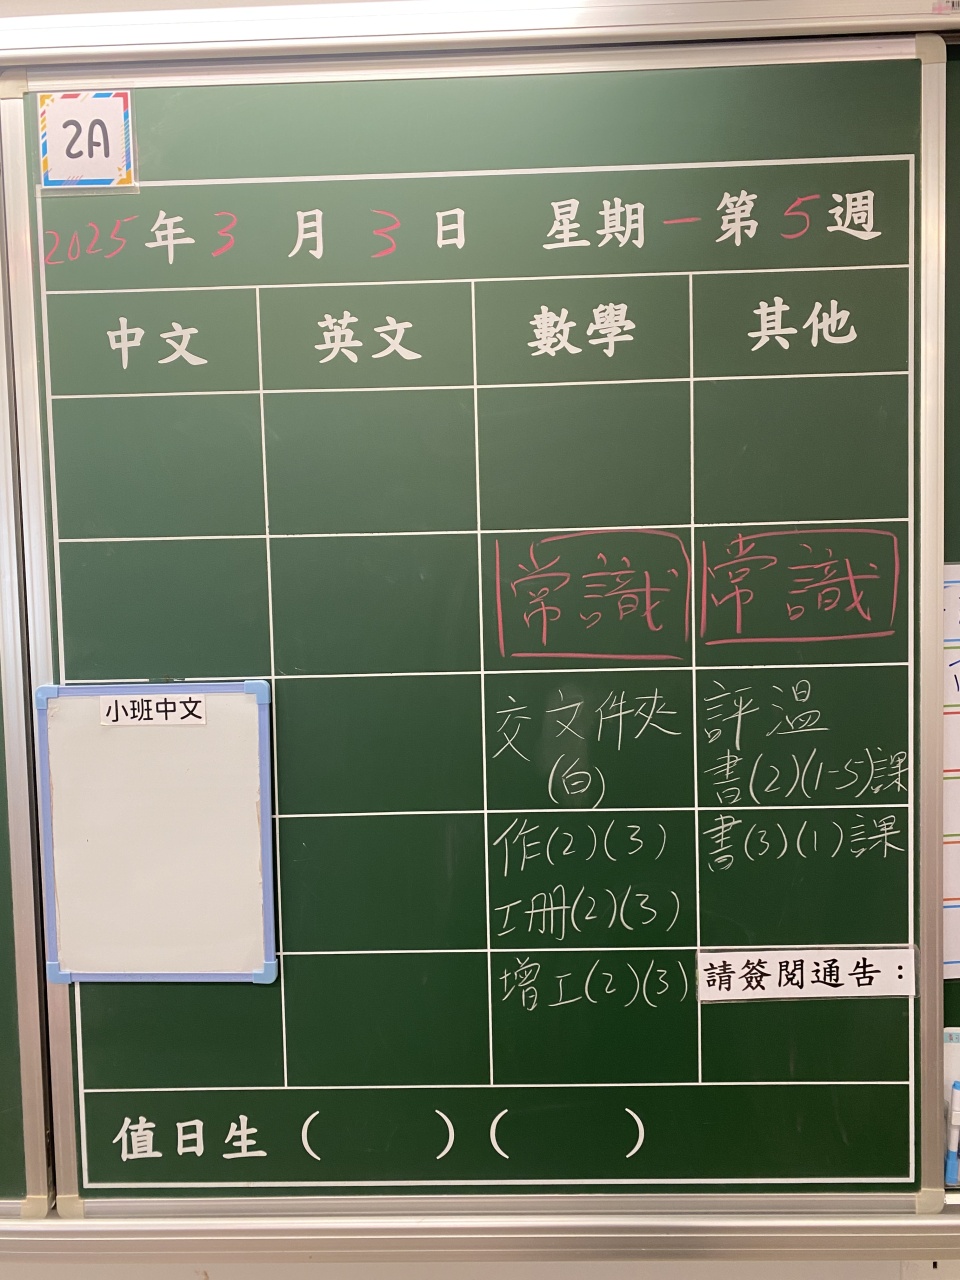 2A
2025年3月3日 星期一第5週
中文 英文 數學 其他
常識 常識
小班中文
交文件夾
(白)
評溫
書(2)(1-5)課
作(2)(3)
工冊(2)(3)
書(3)(1)課
增工(2)(3)
請簽閱通告：
值日生（ ）（ ）